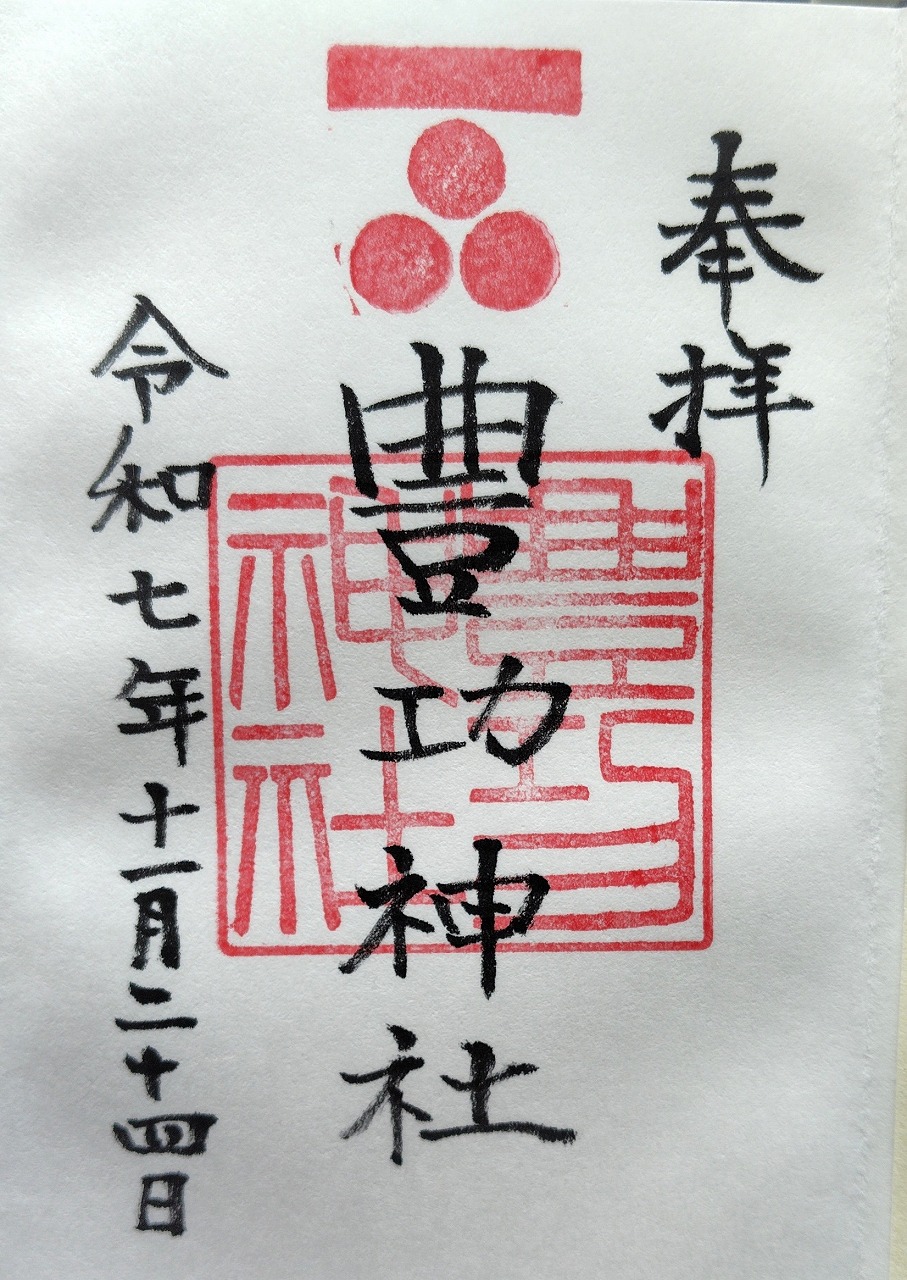 奉拝
豊功神社
豊功神社
令和七年十一月二十四日